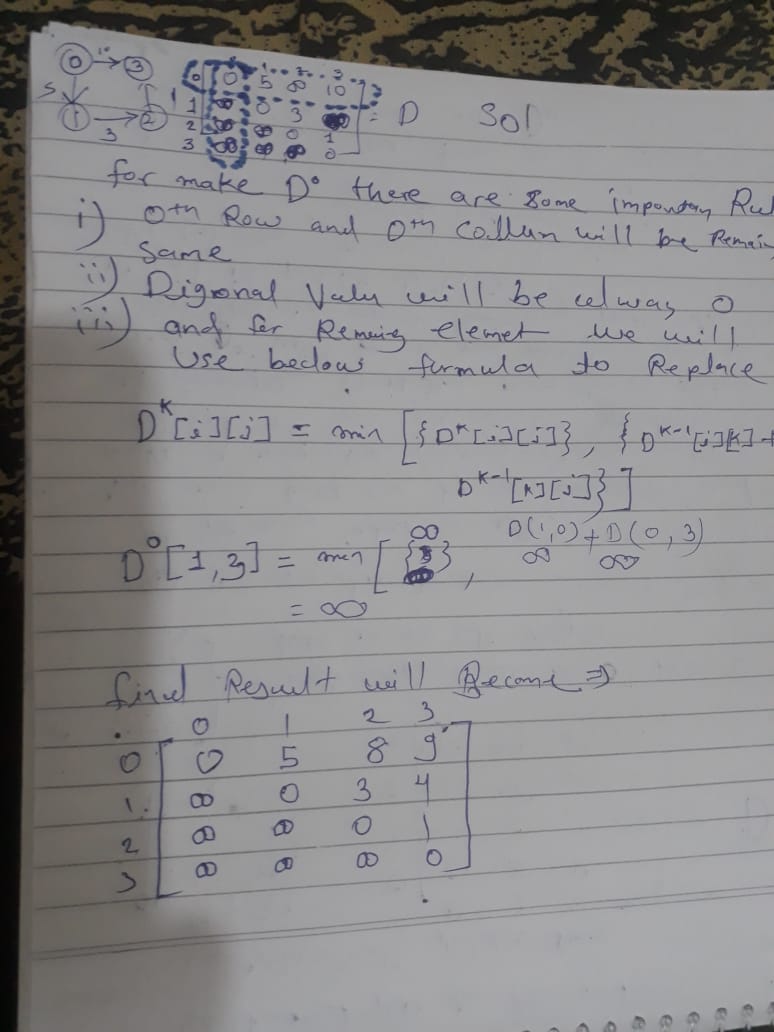 0 → 3 0 1 2 3
5 1 0 [ 0 5 ∞ 10 ]
1 → 2 1 [ ∞ 0 3 ∞ ] = D Sol
3 2 [ ∞ ∞ 0 1 ]
3 [ ∞ ∞ ∞ 0 ]
for make D⁰ there are some impontany Rul
i) 0th Row and 0th Collun will be Remain
Same
ii) Digronal Valu will be alway 0
iii) and for Remeing elemet we will
Use below formula to Replace
Dᴷ[i][j] = min [{Dᴷ[i][j]}, { Dᴷ⁻¹[i][k]+
Dᴷ⁻¹[k][j]}]
∞ D(1,0)+D(0,3)
D⁰[1,3] = min [{ }, ∞ ∞
= ∞
final Result will Become ⇒
0 1 2 3
0 [ 0 5 8 9 ]
1. [ ∞ 0 3 4 ]
2 [ ∞ ∞ 0 1 ]
3 [ ∞ ∞ ∞ 0 ]